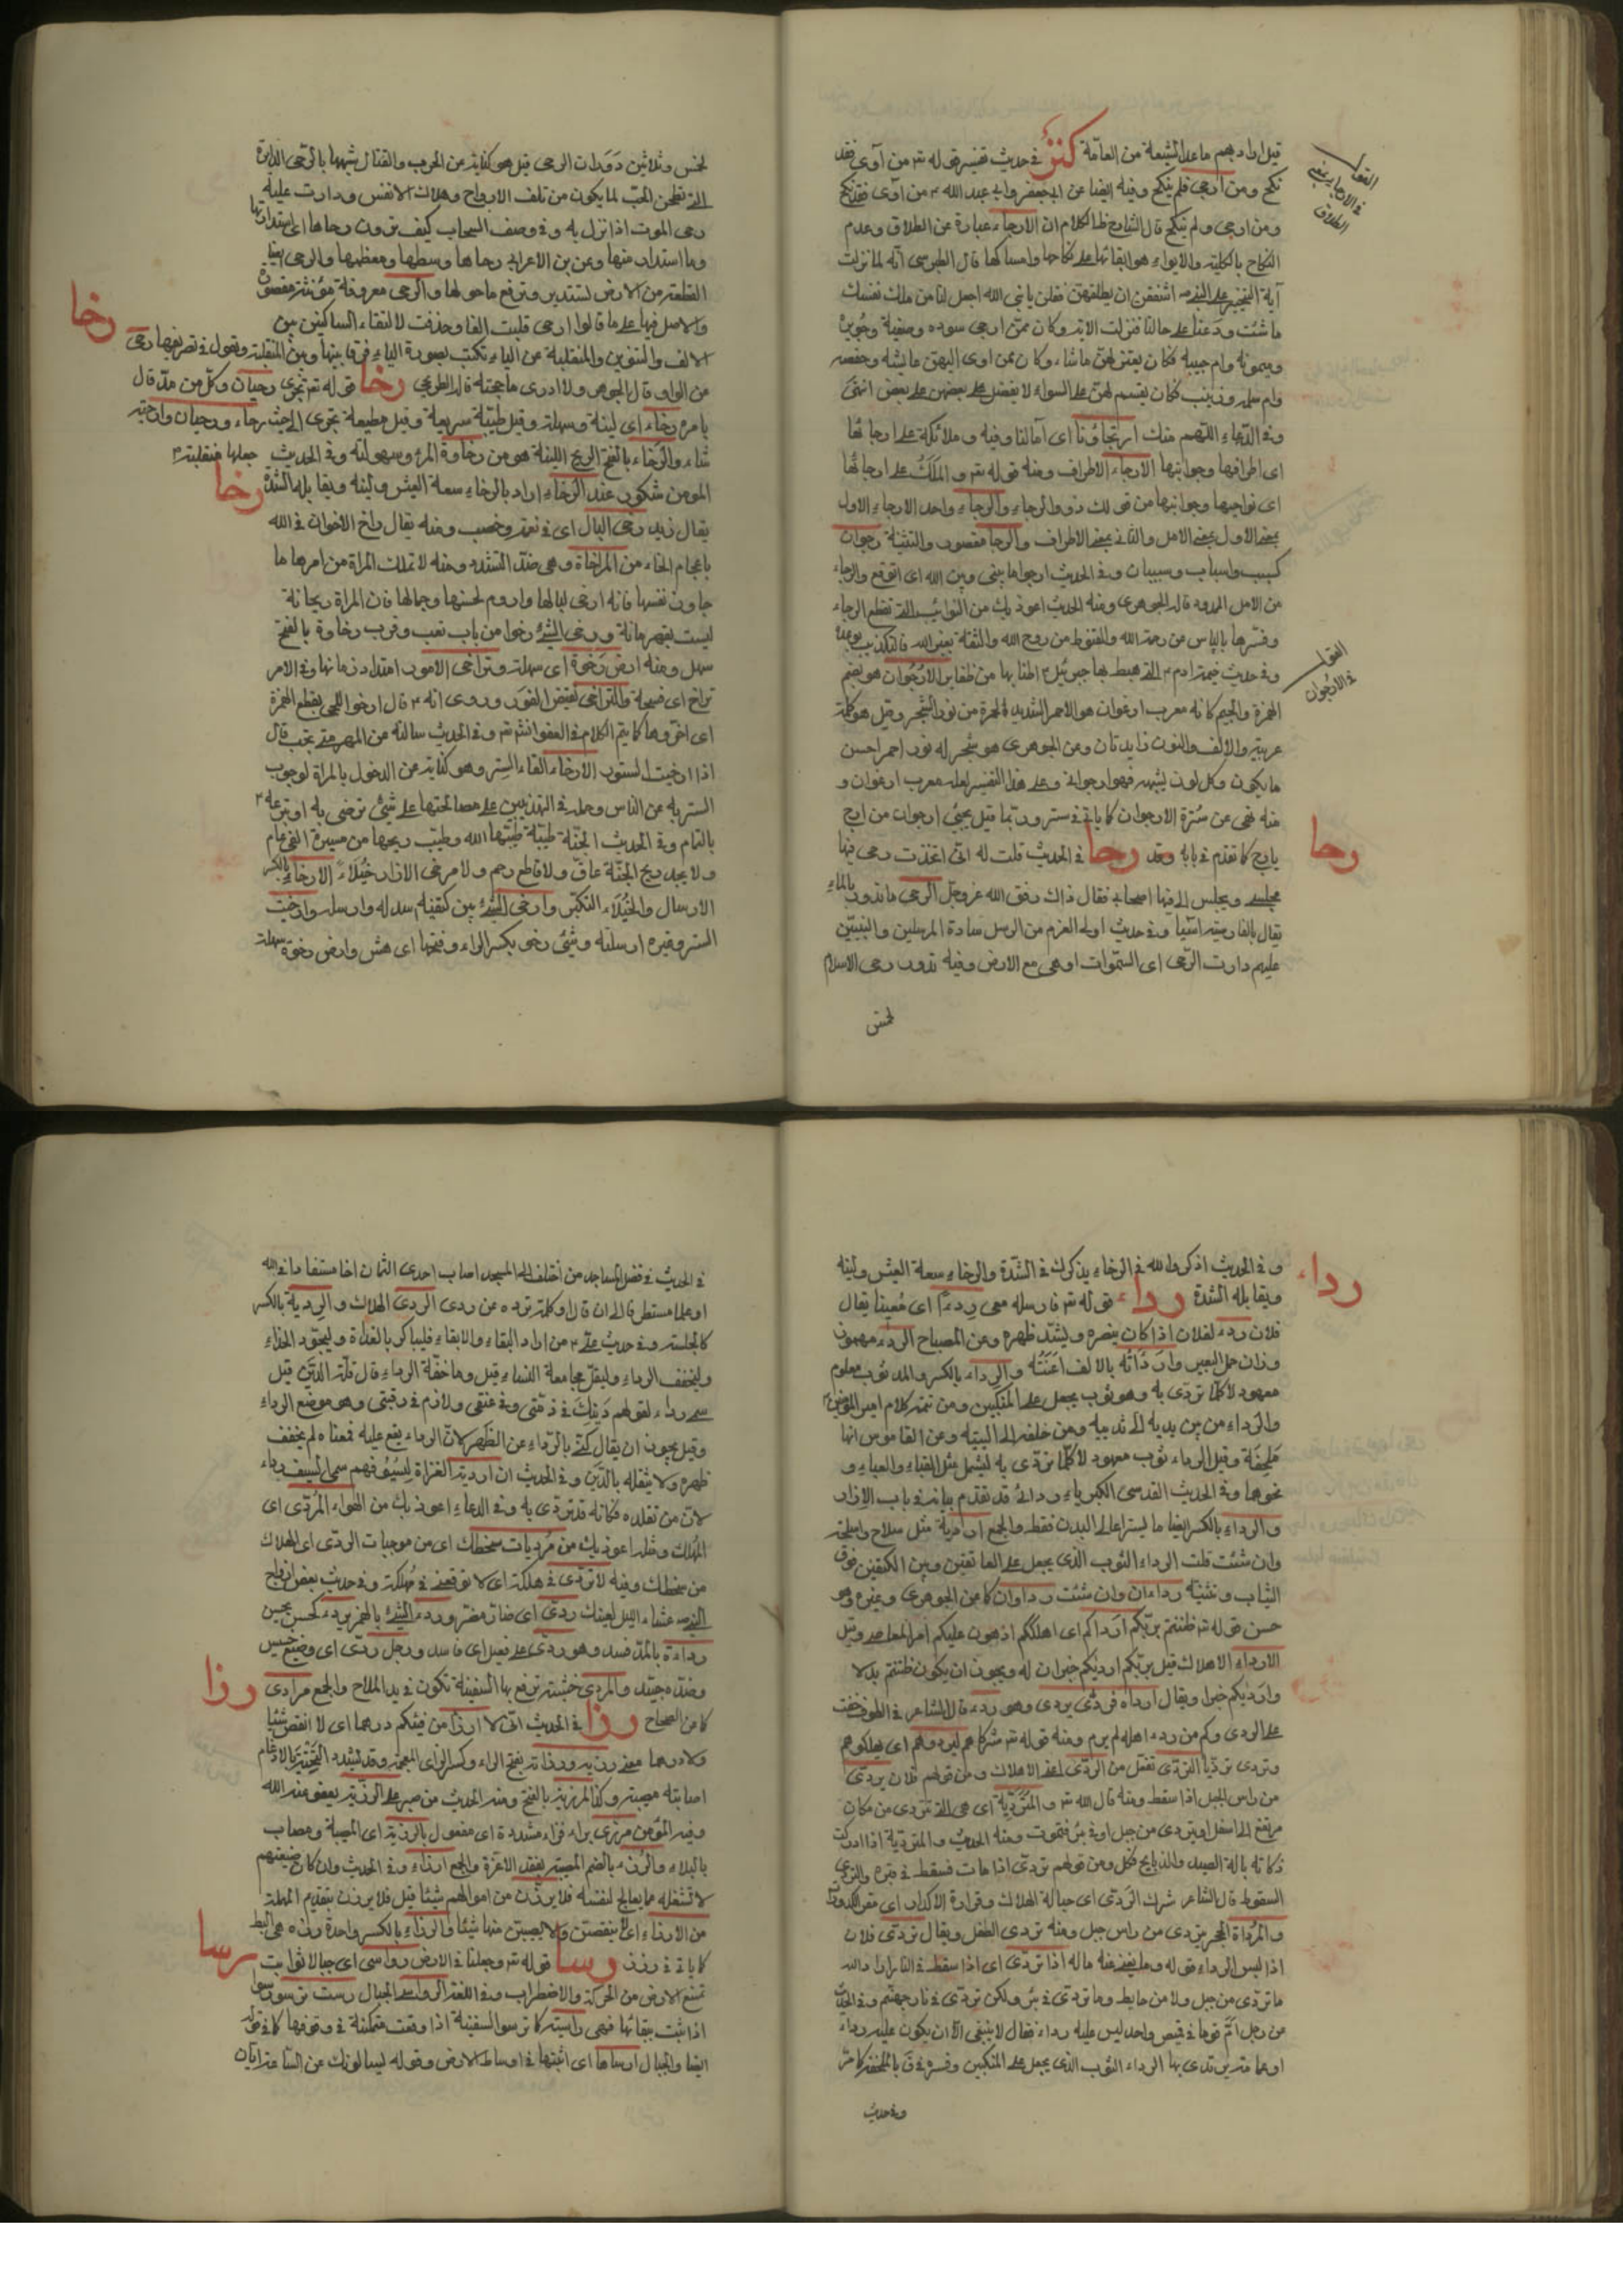 قيل اراد بهم ماعدا الشيعة من العامة كنز في حديث تفسير قوله تم من آوى فقد
نكح ومن ارجى فلم ينكح وفيه ايضا عن ابى جعفر وابى عبد الله ع من آوى فقد نكح
ومن ارجى ولم ينكح قال الشارح ظ الكلام ان الارجاء عبارة عن الطلاق وعدم
النكاح بالكلية والايواء هو ابقائها على نكاحها وامساكها قال الطبرسى انه لما نزلت
آية التخيير على النبى ص اشفقن ان يطلقهن فقلن يا نبى الله اجعل لنا من مالك ونفسك
ما شئت ودعنا على حالنا فنزلت الاية وكان ممن ارجى سوده وصفية وجويرة
وميمونة وام حبيبه فكان يقسم لهن ماشاء وكان ممن اوى اليهن عايشه وحفصه
وام سلمه وزينب فكان يقسم لهن على السواء لا يفضل بعضهن على بعض انتهى
وفي الدعاء اللهم منك ارتجاؤنا اى آمالنا وفيه وملائكة على ارجائها
اى اطرافها وجوانبها الارجاء الاطراف ومنه قوله تم والملك على ارجائها
اى نواحيها وجوانبها من قولك ذو والرجاء والرجاء واحد الارجاء الاول
بمعنى الاول بمعنى الامل والثانى بمعنى الاطراف والرجا مقصور والتثنية رجوان
كسبب واسباب وسببان وفي الحديث ارجوا ما بينى وبين الله اى اتوقع والرجاء
من الامل الممدود قاله الجوهرى ومنه الحديث اعوذ بك من الذنوب التى تقطع الرجاء
وفسرها بالياس من رحمة الله والقنوط من روح الله والثقة بغير الله والتكذيب بوعده
وفي حديث خيمة ادم ع التى هبط بها جبرئيل ع اطنابها من ظفاير الارجوان هو بضم
الهمزة والجيم كانه معرب ارغوان هو الاحمر الشديد الحمرة من نور الشجر وقيل هو كلمة
عربية والالف والنون زايدتان وعن الجوهرى هو شجر له نور احمر احسن
ما يكون وكل لون يشبهه فهو ارجوان وعلى هذا التفسير لعله معرب ارغوان و
منه نهى عن سترة الارجوان كما ياتى في ستر وربما قيل يجئى ارجوان من ارج
يارج كما تقدم في بابه وقد رحا في الحديث قلت له انى اتخذت رحى فيها
مجلسى ويجلس الى فيها اصحابى فقال ذاك رفق الله عز وجل الرحى ما تدور بالماء
يقال بالفارسية اسيا وفي حديث اولى العزم من الرسل سادة المرسلين والنبيين
عليهم دارت الرحى اى السموات اوهى مع الارض وفيه تدور رحى الاسلام
لخمس
رحا
القول
في الارجوان
لخمس وثلاثين دورات الرحى قيل هو كناية عن الحرب والقتال شبهها بالرحى الدايرة
التى تطحن الحب لما يكون من تلف الارواح وهلاك الانفس ودارت عليه
رحى الموت اذا نزل به وفي وصف السحاب كيف ترون رحاها اى استدارتها
وما استدار منها وعن بن الاعرابى رحاها وسطها ومعظمها والرحى ايضا
القطعة من الارض تستدير وترفع ما حولها والرحى معروفة مؤنثة مقصورة
والاصل فيها على ما قالوا ارحى قلبت الفا وحذفت لالتقاء الساكنين بين
الالف والتنوين والمنقلبة عن الياء تكتب بصورة الياء فرقا بينها وبين المنقلبة وتقول في تصريفها رحى
من الواو قال الجوهرى ولا ادرى ما حجته قاله الطريحى رخا قوله تم تجرى رحيان وكل من مد قال
بامره رخاء اى لينة وسهلة وقيل طيبة سريعة وقيل مطيعة تجرى الى حيث رحاء ورحيان وارحية
شاء والرخاء بالفتح الريح اللينة هو من رخاوة المرء وسهولته وفي الحديث جعلها منقلبة
المومن شكور عند الرخاء اراد بالرخاء سعة العيش ولينه ويقابله الشدة
يقال زيد رخى البال اى في نعمة وخصب ومنه يقال واخ الاخوان في الله
باعجام الخاء من المراخاة وهى ضد التشدد ومنه لا تملك المراة من امرها ما
جاوز نفسها فانه ارخى لبالها وادوم لحسنها وجمالها فان المراة ريحانة
ليست بقهرمانة ورخى الشئ رخوا من باب تعب وقرب رخاوة بالفتح
سهل ومنه ارض رخوة اى سهلة وتراخى الامور امتداد زمانها وفي الامر
تراخ اى فسحة والتراخى نقيض الفور وروى انه ع قال ارخوا اللحى بقطع الهمزة
اى اخروها كما يتم الكلام في العفو انشتم وفي الحديث سالته عن المهر متى يجب قال
اذا ارخيت الستور الارخاء القاء الستر وهو كناية عن الدخول بالمراة لوجوب
الستر به عن الناس وحمله في التهذيبين على مصالحتها على شئ ترضى به او تبرعه
بالتمام وفي الحديث الجنة طيبة طيبها الله وطيب ريحها من مسيرة الفى عام
ولا يجد ريح الجنة عاق ولا قاطع رحم ولا مرخى الازار خيلاء الارخاء بالكسر
الارسال والخيلاء التكبر وارخى الشئ بين كتفيه سدله وارسله وارخيت
الستر وغيره ارسلته وشئ رخى بكسر الراء وفتحها اى هش وارض رخوة سهلة
رخا
رخا
وفي الحديث اذكروا الله في الرخاء يذكرك في الشدة والرخاء سعة العيش ولينه
ويقابله الشدة رداء قوله تم فارسله معى ردءا اى معينا يقال
فلان ردء لفلان اذا كان ينصره ويشد ظهره وعن المصباح الردء مهموز
وزان حمل البعير واردأته بالالف اعنته والرداء بالكسر والمد ثوب معلوم
معهود لا كلما تردى به وهو ثوب يجعل على المنكبين ومن تمته كلام امير المومنين ع
والرداء من بين يديه الى ثدييه ومن خلفه الى اليتيه وعن القاموس انها
ملحفة وقيل الرداء ثوب معهود لا كلما تردى به ليشمل مثل القباء والعباء و
نحوها وفي الحديث القدسى الكبرياء ردائى قد تقدم بيانه في باب الازار
والرداء بالكسر ايضا ما يستر اعالى البدن فقط والجمع اردية مثل سلاح واسلحة
وان شئت قلت الرداء الثوب الذى يجعل على العاتقين وبين الكتفين فوق
الثياب وتثنيته رداءان وان شئت رداوان كما عن الجوهرى وغيره وهو
حسن قوله تم ظننتم بربكم ارداكم اى اهلككم اذ هون عليكم امر المعاصى وقيل
الارداء الاهلاك قيل بربكم ارديكم خبران له ويجوز ان يكون ظننتم بدلا
وارديكم خبرا ويقال ارداه فردى يردى وهو ردء قال الشاعر في الطوف خفت
على الردى وكم من ردء اهله لم يرم ومنه قوله تم شركاءهم ليردوهم اى يهلكوهم
وتردى ترديا التردى تفعل من الردى اعنى الاهلاك ومن قولهم فلان يردى
من راس الجبل اذا سقط ومنه قال الله تم والمتردية اى هى التى تتردى من مكان
مرتفع الى اسفل اوتردى من جبل اوفي بئر فتموت ومنه الحديث والمتردية اذا ادركت
ذكاته بالة الصيد والذبايح فكل ومن قولهم تردى اذا مات فسقط في قبره والتردى
السقوط قال الشاعر شرك الردى اى حبالة الهلاك وقرارة الاكدار اى مقر الكدورة
والمرداة الحجر يتردى من راس جبل ومنه تردى الطفل ويقال تردى فلان
اذا لبس الرداء قوله وما يغنى عنه ماله اذا تردى اى اذا سقط في النار اوا والله
ما تردى من جبل ولا من حايط وما تردى في بئر ولكن تردى في نار جهنم وفي الحديث
عن رجل ام قوما في قميص واحد ليس عليه رداء فقال لا ينبغى الا ان يكون عليه رداء
اوعمامة يرتدى بها الرداء الثوب الذى يجعل على المنكبين وفسره في ق بالملحفة كما مر
وفي حديث
رداء
في الحديث في فضل المساجد من اختلف الى المسجد اصاب احدى الثمان اخا مستفادا في الله
او علما مستطرفا الى ان قال او كلمة ترده عن ردى الردى الهلاك والردية بالكسر
كالجلسة وفي حديث على ع من اراد البقاء والابقاء فليباكر بالغداة وليجود الحذاء
وليخفف الرداء وليقل مجامعة النساء قيل وما خفة الرداء قال قلة الدين قيل
سمى رداء لقولهم دينك في ذمتى وفي عنقى ولازم في رقبتى وهو موضع الرداء
وقيل يجوز ان يقال كنى بالرداء عن الظهر لان الرداء يقع عليه فمعناه لم يخفف
ظهره ولا يثقله بالدين وفي الحديث ان اردية الغزاة لسيوفهم سمى السيف رداء
لان من تقلده فكانه قد تردى به وفي الدعاء اعوذ بك من الهواء المردى اى
المهلك ومثله اعوذ بك من مرديات سخطك اى من موجبات الردى اى الهلاك
من سخطك وفيه لا تردى في هلكة اى لا توقعنى في مهلكة وفي حديث بعض ازواج
النبى ص عشاء الليل لعينك ردى اى ضار مضر وردء الشئ بالهمز يردء كحسن يحسن
رداءة بالمد فسد وهو ردى على فعيل اى فاسد ورجل ردى اى وضيع خسيس
وضده جيد والمردى خشبة ترفع بها السفينة تكون في يد الملاح والجمع مرادى
كما من الصحاح رزا في الحديث انى لا ارزا من فيئكم درهما اى لا انقص شيئا
ولا درهما معنى رزية ورزاته بفتح الراء وكسر الزاى المعجمة وقد تشدد التحتية بالادغام
اصابته مصيبة وكذا المرزية بالفتح ومنه الحديث من صبر على الرزية يعوضه الله
وفيه المؤمن مرزى براء فزاء مشددة اى مفعول بالرزية اى المصيبة ومصاب
بالبلاء والرزء بالضم المصيبة بفقد الاعزة والجمع ارزاء وفي الحديث وان كان ضيعتهم
لا تشغله مما يعالج لنفسه فلا يرزن من اموالهم شيئا قيل فلا يرزن بتقديم المهملة
من الارزاء اى لا ينقصن ولا يصيبن منها شيئا والرزاء بالكسر واحدة رزه هى البط
كما ياتى في رزز رسا قوله تم وجعلنا في الارض رواسى اى جبالا ثوابت
تمنع الارض من الحركة والاضطراب وفي اللغة الرواسى الجبال رست ترسو رسوا
اذا ثبت ببقائها فهى راسية كما ترسو السفينة اذا وقعت متمكنة في وقوفها كما في قوله
ايضا والجبال ارساها اى اثبتها في اوساط الارض وقوله ليسالونك عن الساعة ايان
رزا
رسا